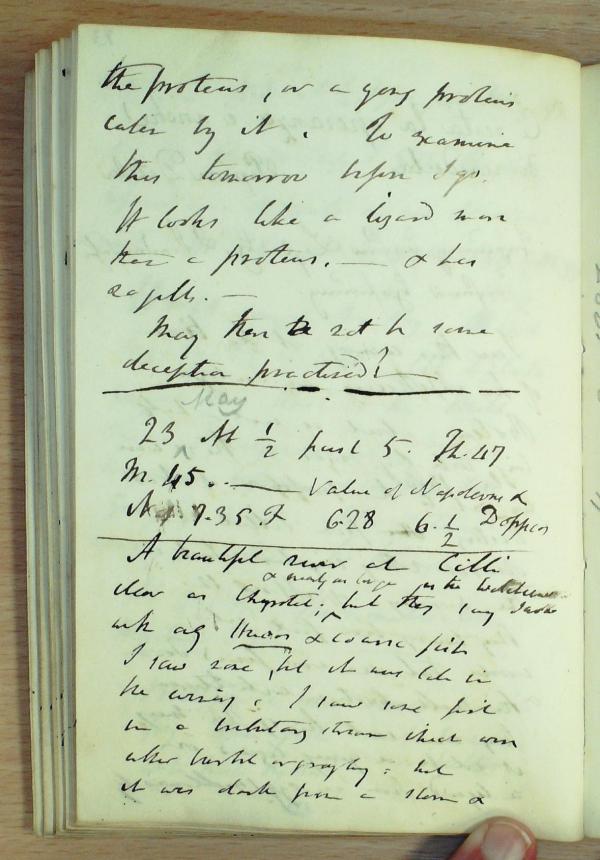 the proteus, or a yong proteus
eaten by it. To examine
this tomorrow before I go.
It looks like a lizard more
than a proteus. — & has
no gills. —
May there not be some
deception practised? —
May
23 At 1/2 past 5. Th. 47
M. 45. . — Value of Napoleons &
7.35. F 6.28 6. 1/2 Doppios
A beautiful river at Cilli
& nearly as large in the
clear as Chrystal; but they say
with only Hucos & coarse fish
I saw none, but it was late in
the evening; I saw some fish
in a tributary stream which were
either or grayling; but
it was dark from a storm &